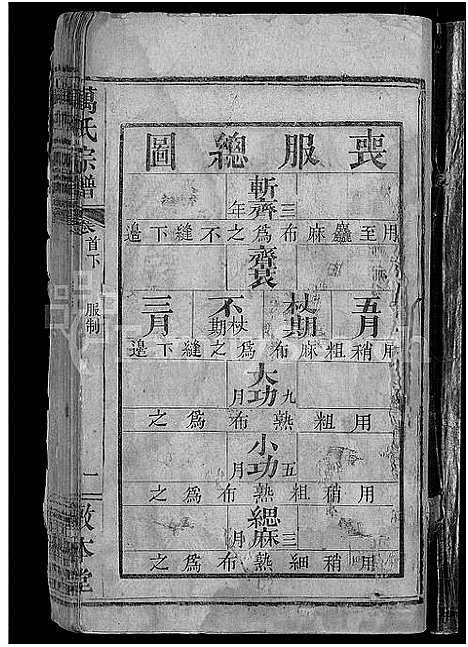 萬氏宗譜
卷首下
服制
二
敦本堂
喪服總圖
斬齊三年
用至麤麻布為之不縫下邊
齊衰
五月
杖期
不杖期
三月
用稍粗麻布為之縫下邊
大功九月
用粗熟布為之
小功五月
用稍粗熟布為之
緦麻三月
用稍細熟布為之